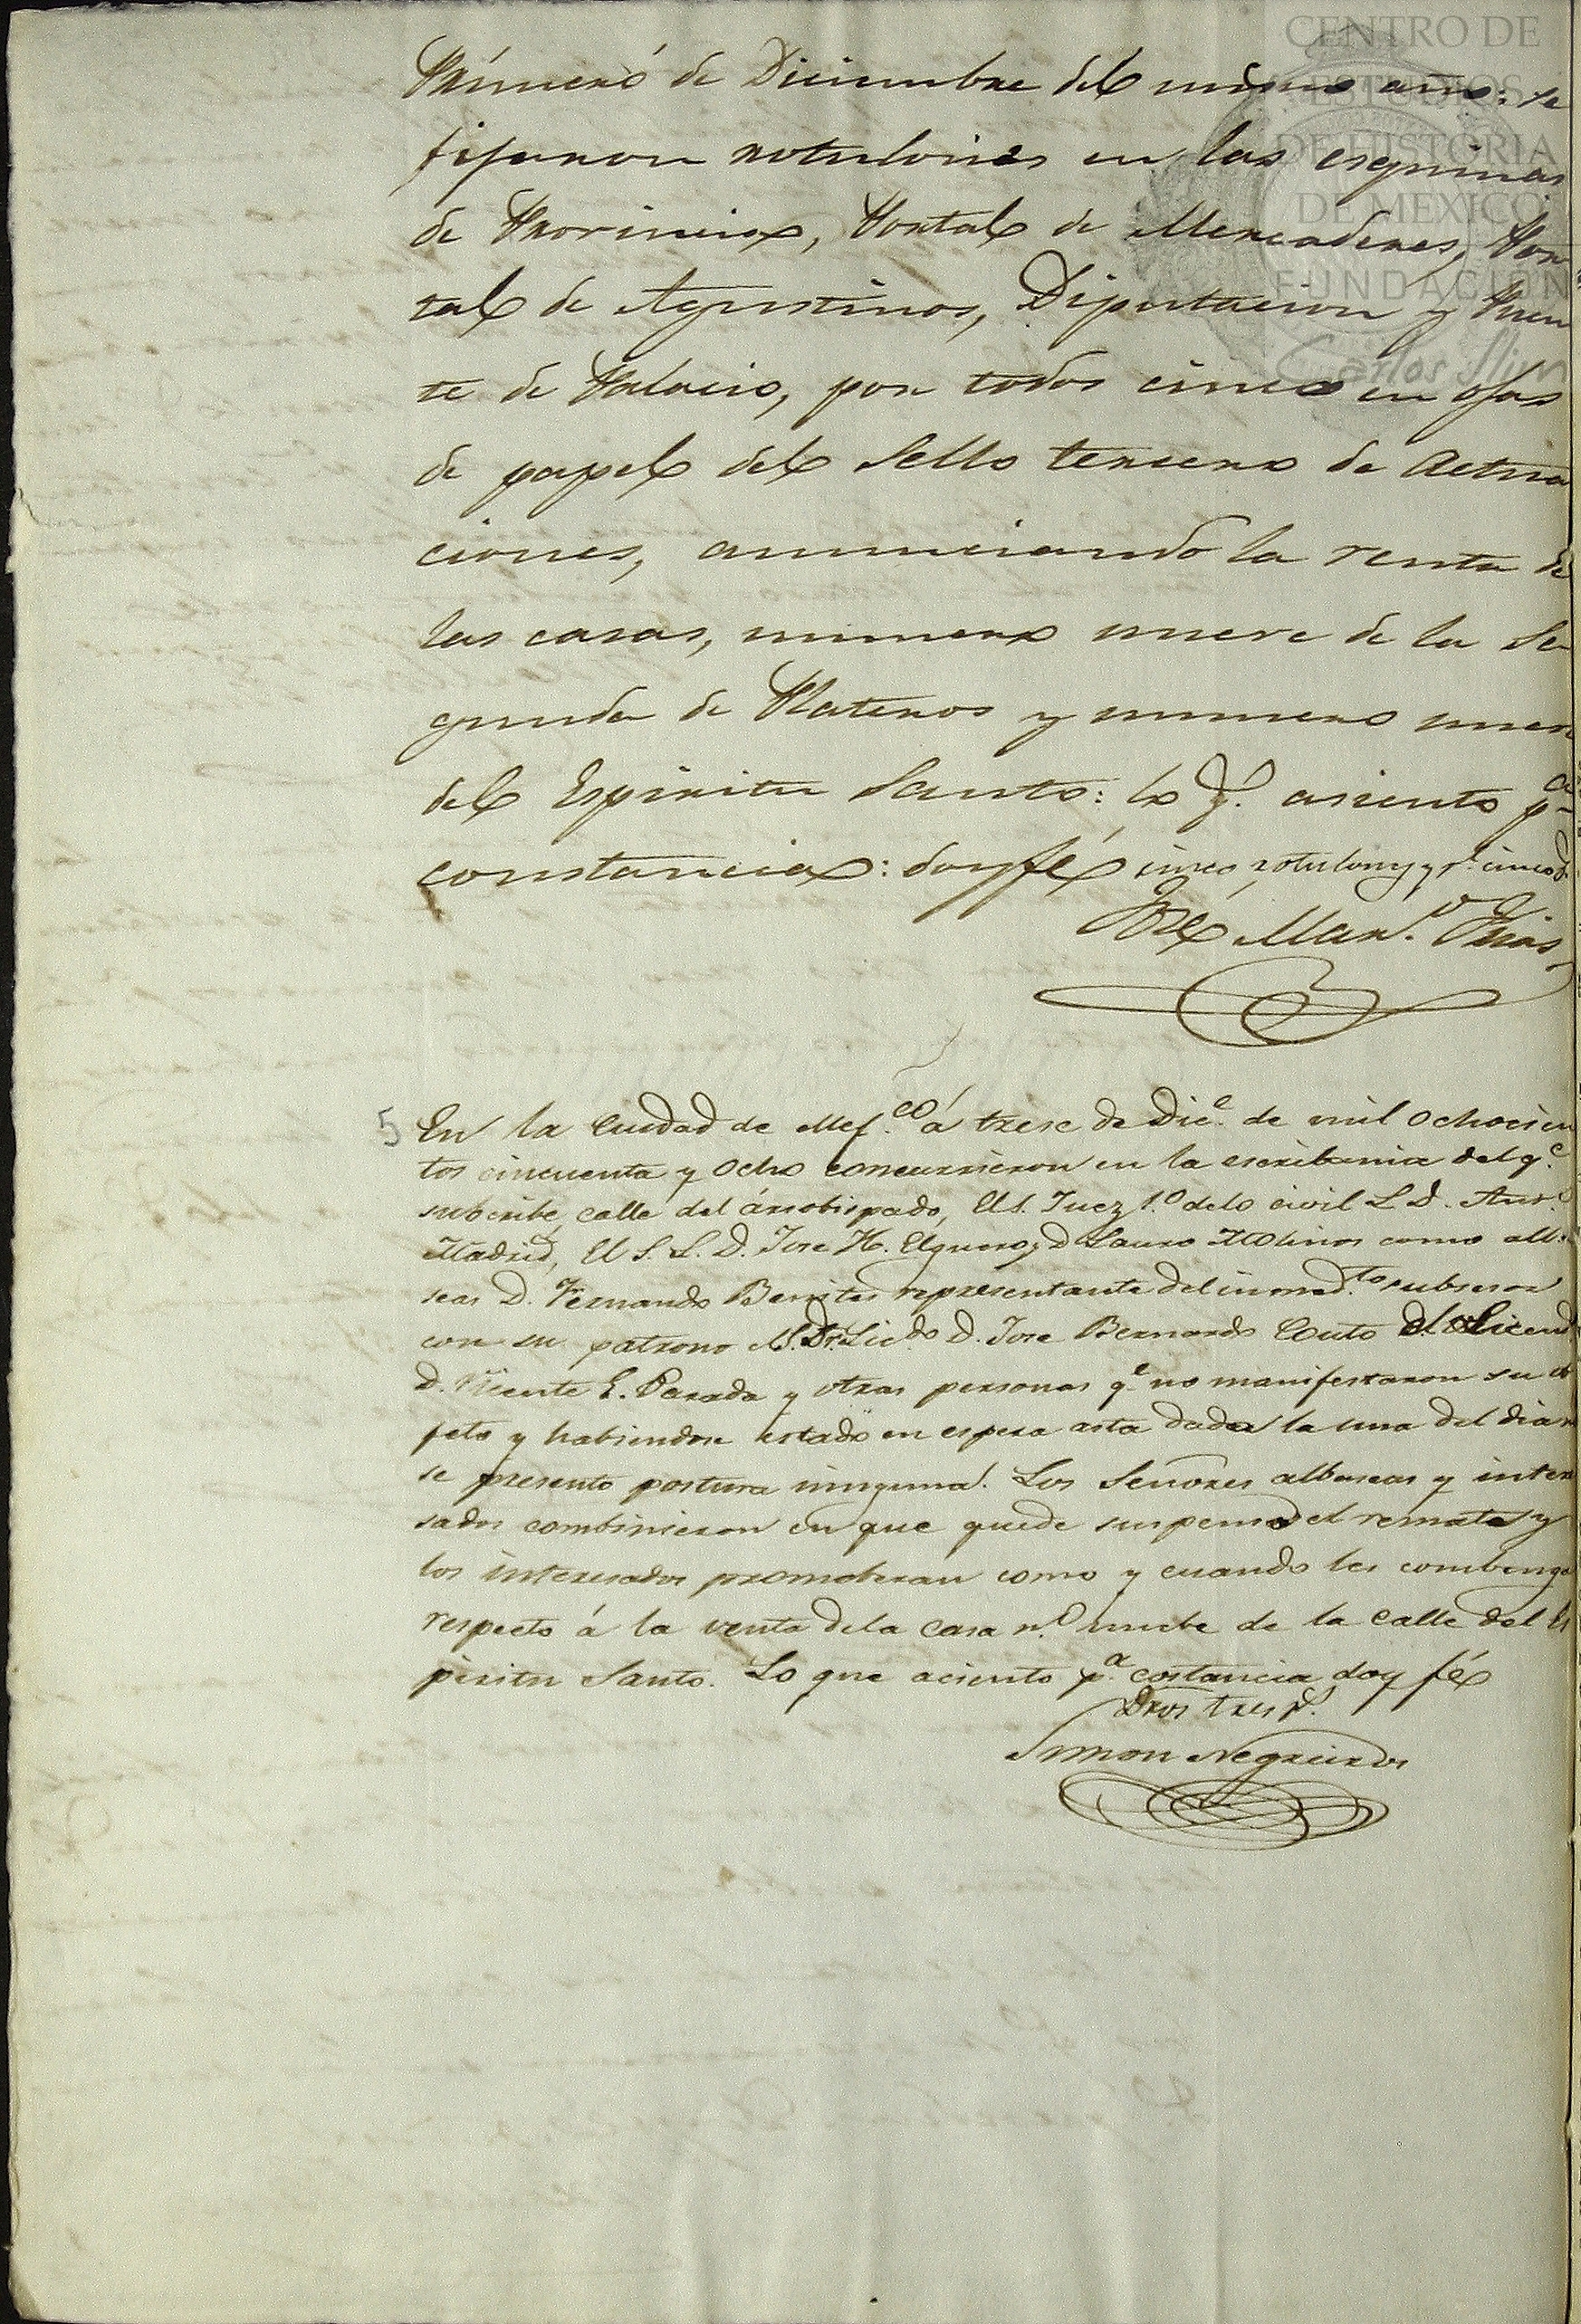 CENTRO DE
ESTUDIOS
DE HISTORIA
DE MEXICO
FUNDACIÓN
Carlos Slim
Primero de Diciembre del mismo año: se
fijaron rotulones en las esquinas
de Provincia, Portal de Mercaderes, Por
tal de Agustinos, Diputacion y Puen
te de Palacio, por todos cinco en ojas
de papel del Sello tercero de actua
ciones, anunciando la venta de
las casas, numero nueve de la Se
gunda de Plateros y numero nueve
del Espiritu Santo: lo q.e asiento p.a
constancia: doy fé cinco rotulones y p.s cinco
José Man.l Frias
5 En la Ciudad de Mej.co á trese de Dic.e de mil ochocien
tos cincuenta y ocho concurrieron en la escribania del q.e
subcribe, calle del ársobispado, El S. Juez 1.o delo civil L D. Ant.o
Madrid, El S. L. D. Jose H. Elguero y D Lauro Molinos como alba
seas D. Fernando Benites representante del inmed.to subsesor
con su patrono el S. Dr. Lic.do D. Jose Bernardo Couto el Licend
D. Vicente E. Parada y otras personas q.e no manifestaron su ob
jeto y habiendose estado en espera asta dada la una del dia n
se presento postura ninguna. Los Señores albaseas y intere
sados combinieron en que quede suspenso el remate y
los interesados promoberan como y cuando les combenga
respecto á la venta dela casa n.o nuebe de la calle del Es
piritu Santo. Lo que aciento p.a costancia doy fé
Dros tres p.s
Simon Negreiros